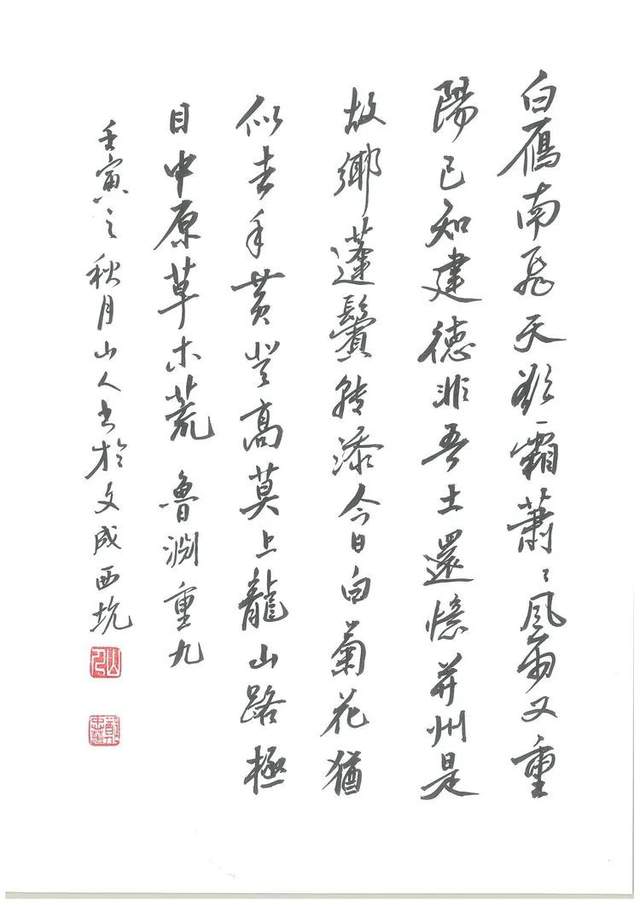 白雁南飛天欲霜蕭〻風雨又重
陽已知建德非吾土還憶并州是
故鄉蓬鬢轉添今日白菊花猶
似去年黄登高莫上龍山路極
目中原草木荒 魯淵重九
壬寅之秋月山人書於文成西坑